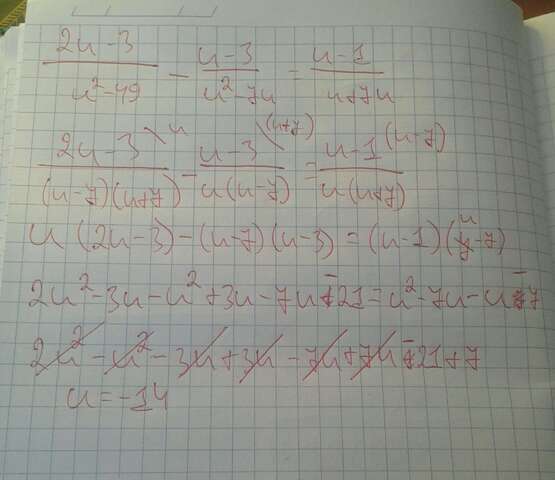 (2u-3)/(u²-49) - (u-3)/(u²-7u) = (u-1)/(u+7u)
(2u-3)\u/((u-7)(u+7)) - (u-3)\(u+7)/(u(u-7)) = (u-1)(u-7)/(u(u+7))
u(2u-3)-(u-7)(u-3)=(u-1)(u-7)
2u²-3u-u²+3u-7u-21=u²-7u-u-7
2u²-u²-3u+3u-7u+7u-21+7
u=-14